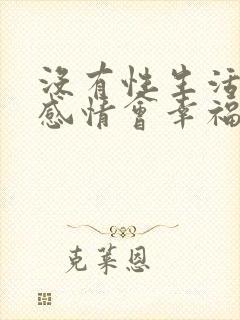 没有性生活
感情會幸福
克莱恩